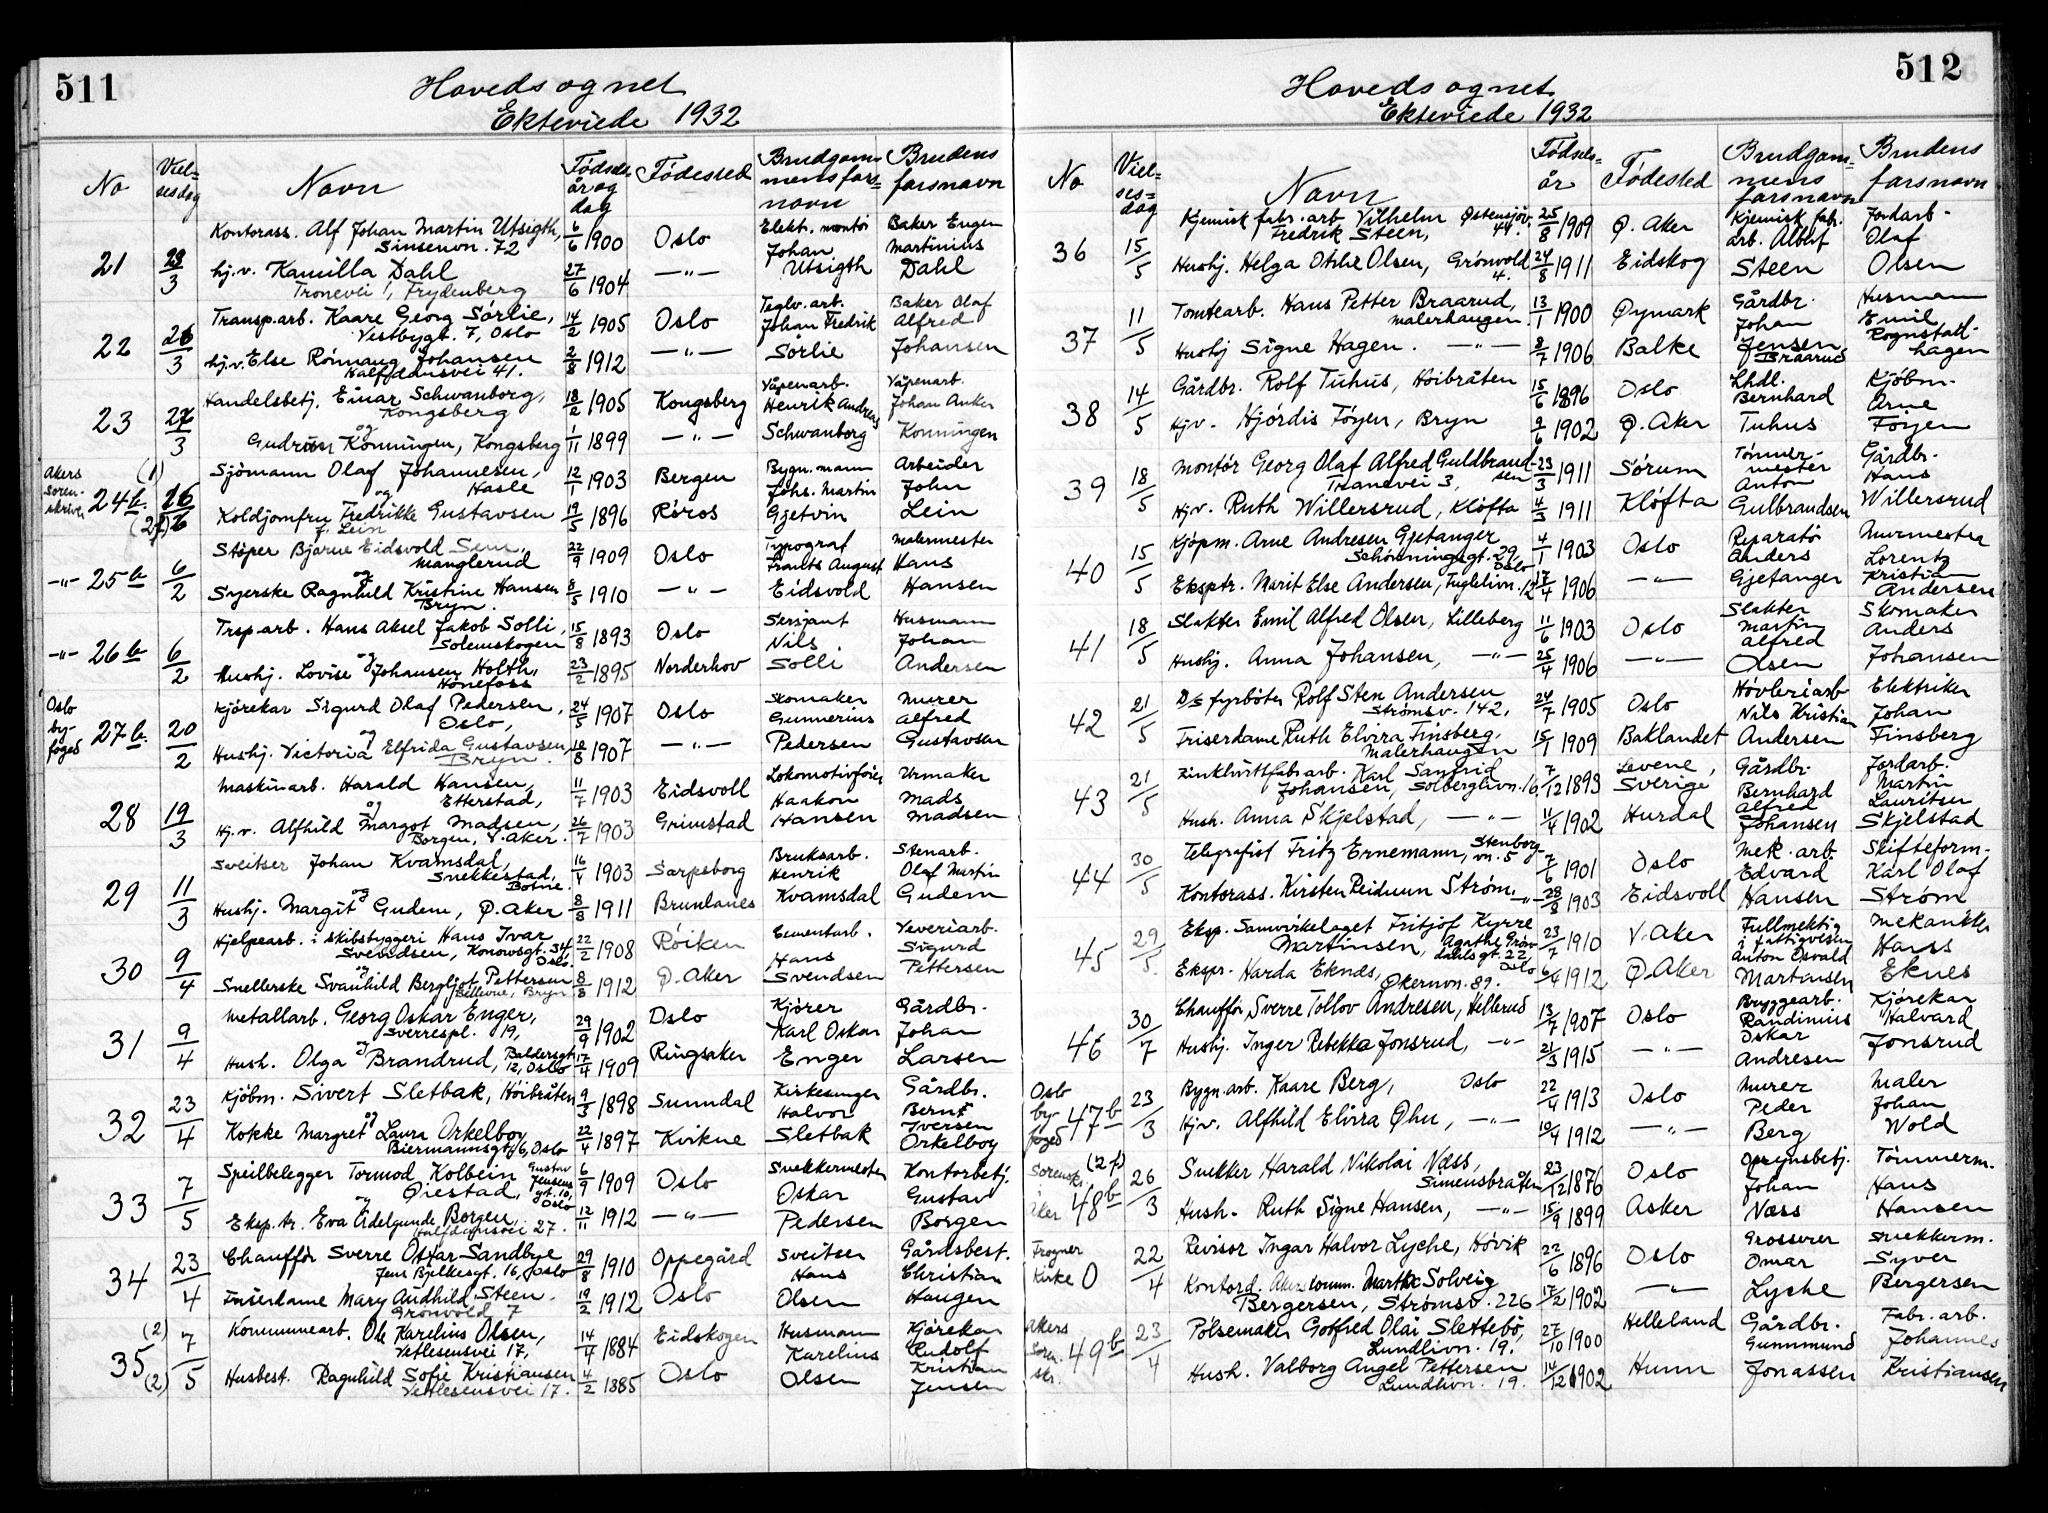 511
Hovedsognet
Ekteviede 1932
No
Viel=
sesdag
Navn
Fødsels
år og
dag
Fødested
Brudgom=
mens fars=
navn
Brudens
farsnavn
21 23/3 Kontorass. Alf Johan Martin Utsigth, 6/6 1900 Oslo Elekt. montør Baker Eugen
Sinsenvn. 72 Johan Martinius
hj.v. Kamilla Dahl 27/6 1904 —"— Utsigth Dahl
Tronevei 1, Frydenberg
22 26/3 Transp.arb. Kaare Georg Sørlie, 14/2 1905 Oslo Teglv.arb. Baker Olaf
Vestbygt. 7, Oslo Johan Fredrik Alfred
hj.v. Else Rønnaug Johansen 2/8 1912 —"— Sørlie Johansen
Halfdansvei 41.
23 Handelsbetj. Einar Schwanborg, 18/2 1905 Kongsberg Våpenarb. Våpenarb.
Kongsberg Henrik Andreas Johan Anker
og
Gudrun Konningen, Kongsberg 1/11 1899 —"— Schwanborg Konningen
Akers
soren-
skriver
24b. Sjømann Olaf Johannesen, 12/1 1903 Bergen Bygn.mann Arbeider
Hasle Johs. Martin John
og
Koldjomfru Fredrikke Gustavsen 19/5 1896 Røros Gjetvin Lein
f. Lein
—"— 25b 6/2 Støper Bjarne Eidsvold Sem, 22/9 1909 Oslo Typograf Malermester
Manglerud Frants August Hans
og
Syerske Ragnhild Kristine Hansen 8/5 1910 —"— Eidsvold Hansen
Bryn.
—"— 26b 6/2 Trsp.arb. Hans Aksel Jakob Solli, 15/8 1893 Oslo Sersjant Husmann
Solemskogen Nils Johan
og
Hushj. Lovise Johansen Holth, 23/2 1895 Norderhov Solli Andersen
Hønefoss
Oslo
by-
foged
27b. 20/2 Kjørekar Sigurd Olaf Pedersen, 24/5 1907 Oslo Skomaker Murer
Oslo, Gunnerius Alfred
og
Hushj. Victoria Elfrida Gustavsen, 10/8 1907 —"— Pedersen Gustavsen
Bryn.
28 19/3 Maskinarb. Harald Hansen, 11/7 1903 Eidsvoll Lokomotivfører Urmaker
Etterstad, Haakon Mads
og
Hj.v. Alfhild Margot Madsen, 26/7 1903 Grimstad Hansen Madsen
29 11/3 Sveitser Johan Kvamsdal, 16/4 1903 Sarpsborg Bruksarb. Stenarb.
Snekkestad, Henrik Olaf Martin
Botne.
og
Hushj. Margit Gudem, Ø.Aker 8/8 1911 Brunlanes Kvamsdal Gudem
30 9/4 Hjelpearb. i skibsbyggeri Hans Ivar 22/2 1908 Røiken Cementarb. Veveriarb.
Svendsen, Konowsgt. 34, Hans Sigurd
Oslo.
og
Snellerske Svanhild Bergljot Pettersen 8/8 1912 Ø.Aker Svendsen Pettersen
Bellevue, Bryn
31 9/4 Metallarb. Georg Oskar Enger, 29/9 1902 Oslo Kjører Gårdbr.
Sverrespl. 19, Karl Oskar Johan
og
Hush. Olga Brandrud, Baldersgt. 17/4 1909 Ringsaker Enger Larsen
12, Oslo
32 23/4 Kjøbm. Sivert Sletbak, Høibråten 9/3 1898 Sunndal Kirkesanger Gårdbr.
Halvor Bernt
og Iversen
Kokke Margret Laura Orkelboy 22/4 1897 Kvikne Sletbak Orkelboy
Biermannsgt. 6, Oslo
33 7/5 Speilbelegger Tormod Kolbein Gustav 6/9 1909 Oslo Snekkermester Kontorbetj.
Øiestad, Jensens gt. 10, Oslo Oskar Gustav
og
Eksp.tr. Eva Adelgunde Borgen, 12/11 1912 —"— Pedersen Borgen
Halfdansvei 27.
34 23/4 Chauffør Sverre Oskar Sandbye 29/8 1910 Oppegård Sveitser Gårdsbest.
Jens Bjelkesgt. 16, Oslo Hans Christian
Friserdame Mary Audhild Steen. 19/2 1912 Oslo Olsen Haugen
Grønvold 7
35 7/5 Kommunearb. Ole Karelius Olsen, 14/7 1884 Eidskogen Husmann Kjørekar
Vetlesensvei 17, Karelius Rudolf
Kristian
Husbest. Ragnhild Sofie Kristiansen 4/2 1885 Oslo Olsen Jensen
Vetlesensvei 17.
512
Hovedsognet
Ekteviede 1932
No
Viel=
ses=
dag
Navn
Fødsels=
år
Fødested
Brudgom=
mens
farsnavn
Brudens
farsnavn
36 15/5 Kjemisk fabr.arb Vilhelm Østensjøv. 25/8 1909 Ø.Aker Kjemisk fabr. Jordarb.
Fredrik Steen, 44. arb. Albert Olaf
Hushj. Helga Otilie Olsen, Grønvold 24/8 1911 Eidskog Steen Olsen
4.
37 11/5 Tomtearb. Hans Petter Braarud, 13/1 1900 Øymark Gårdbr. Husmann
Malerhaugen. Johan Emil
Hushj Signe Hagen. —"— 8/7 1906 Balke Jensen Rognstad-
Braarud hagen
38 14/5 Gårdbr. Rolf Tuhus, Høibråten 15/6 1896 Oslo Lhdl. Kjøbm.
Bernhard Arne
Hjv. Hjørdis Føyen, Bryn 9/6 1902 Ø.Aker Tuhus Føyen
39 18/5 Montør Georg Olaf Alfred Guldbrand- 23/3 1911 Sørum Tømmer- Gårdbr.
Tranevei 3, sen mester Hans
Anton
Hjv. Ruth Willersrud, Kløfta 4/3 1911 Kløfta Gulbrandsen Willersrud
40 15/5 Kjøpm. Arne Andresen Gjetanger 4/1 1903 Oslo Reparatør Murmester
Schønningsgt. 29, Oslo Anders Lorentz
Kristian
Eksptr. Marit Else Andersen, Fuglelivn. 12 17/4 1906 —"— Gjetanger Andersen
41 18/5 Slakter Emil Alfred Olsen, Lilleberg 11/6 1903 Oslo Slakter Skomaker
Martin Anders
Alfred
Hushj. Anna Johansen, —"— 25/4 1906 —"— Olsen Johansen
42 21/5 D/S fyrbøter Rolf Sten Andersen 24/7 1905 Oslo Høvleriarb Elektriker
Strømsv. 142, Nils Kristian Johan
Friserdame Ruth Elvira Finsberg, 15/1 1909 Baklandet Andersen Finsberg
Malerhaugen
43 21/5 Zinkhvittfabr.arb. Karl Sanfrid 7/12 1893 Levene, Gårdbr. Jordarb.
Johansen, Solberglivn. 16, Sverige Bernhard Martin
Alfred Lauritsen
Hush. Anna Skjelstad, —"— 11/4 1902 Hurdal Johansen Skjelstad
44 30/5 Telegrafist Fritz Ernemann, Stenborg- 7/6 1901 Oslo Mek. arb. Skifteform.
vn. 5 Edvard Karl Olaf
Kontorass. Kirsten Reidunn Strøm. —"— 28/8 1903 Eidsvoll Hansen Strøm
45 29/5 Eksp. Samvirkelaget Fritjof Kyrre 23/7 1910 V.Aker Fullmektig Mekaniker
Martinsen, Agathe Grøn- i fattigvesen Hans
dahlsgt. 22 Oslo Anton Osvald
Ekspr. Harda Eknes, 6/4 1912 Ø.Aker Martinsen Eknes
Økernvn. 89.
46 30/7 Chauffør, Sverre Tollov Andresen, Hellerud 13/7 1907 Oslo Bryggearb. Kjørekar
Randinius Halvard
Oskar
Hushj. Inger Rebekka Jonsrud, —"— 21/3 1915 —"— Andresen Jonsrud
Oslo
by-
foged
47b 23/3 Bygn.arb. Kaare Berg, Oslo 22/4 1913 Oslo Murer Maler
Peder Johan
Hjv. Alfhild Elvira Øhn, —"— 10/4 1912 —"— Berg Wold
Sorensk.
i
Aker
48b 26/3 Snekker Harald Nikolai Næss, 23/12 1876 Oslo Opsynsbetj. Tømmerm.
Simensbråten Johan Hans
Hush. Ruth Signe Hansen, —"— 15/9 1899 Asker Næss Hansen
Frogner
Kirke
0 22/4 Revisor Ingar Halvor Lyche, Høvik 22/6 1896 Oslo Grosserer Snekkerm.
Omar Syver
Kontord. Aker komm. Marthe Solveig 17/2 1902 —"— Lyche Bergersen
Bergersen, Strømsv. 226
Akers
Soren-
skr.
49b 23/4 Pølsemaker Gotfred Olai Slettebø, 27/10 1900 Helleland Gårdbr. Fabr. arb.
Lundlivn. 19. Gunnmund Johannes
Hush. Valborg Angel Pettersen 14/12 1902 Hunn Jonassen Kristiansen
Lundlivn. 19.